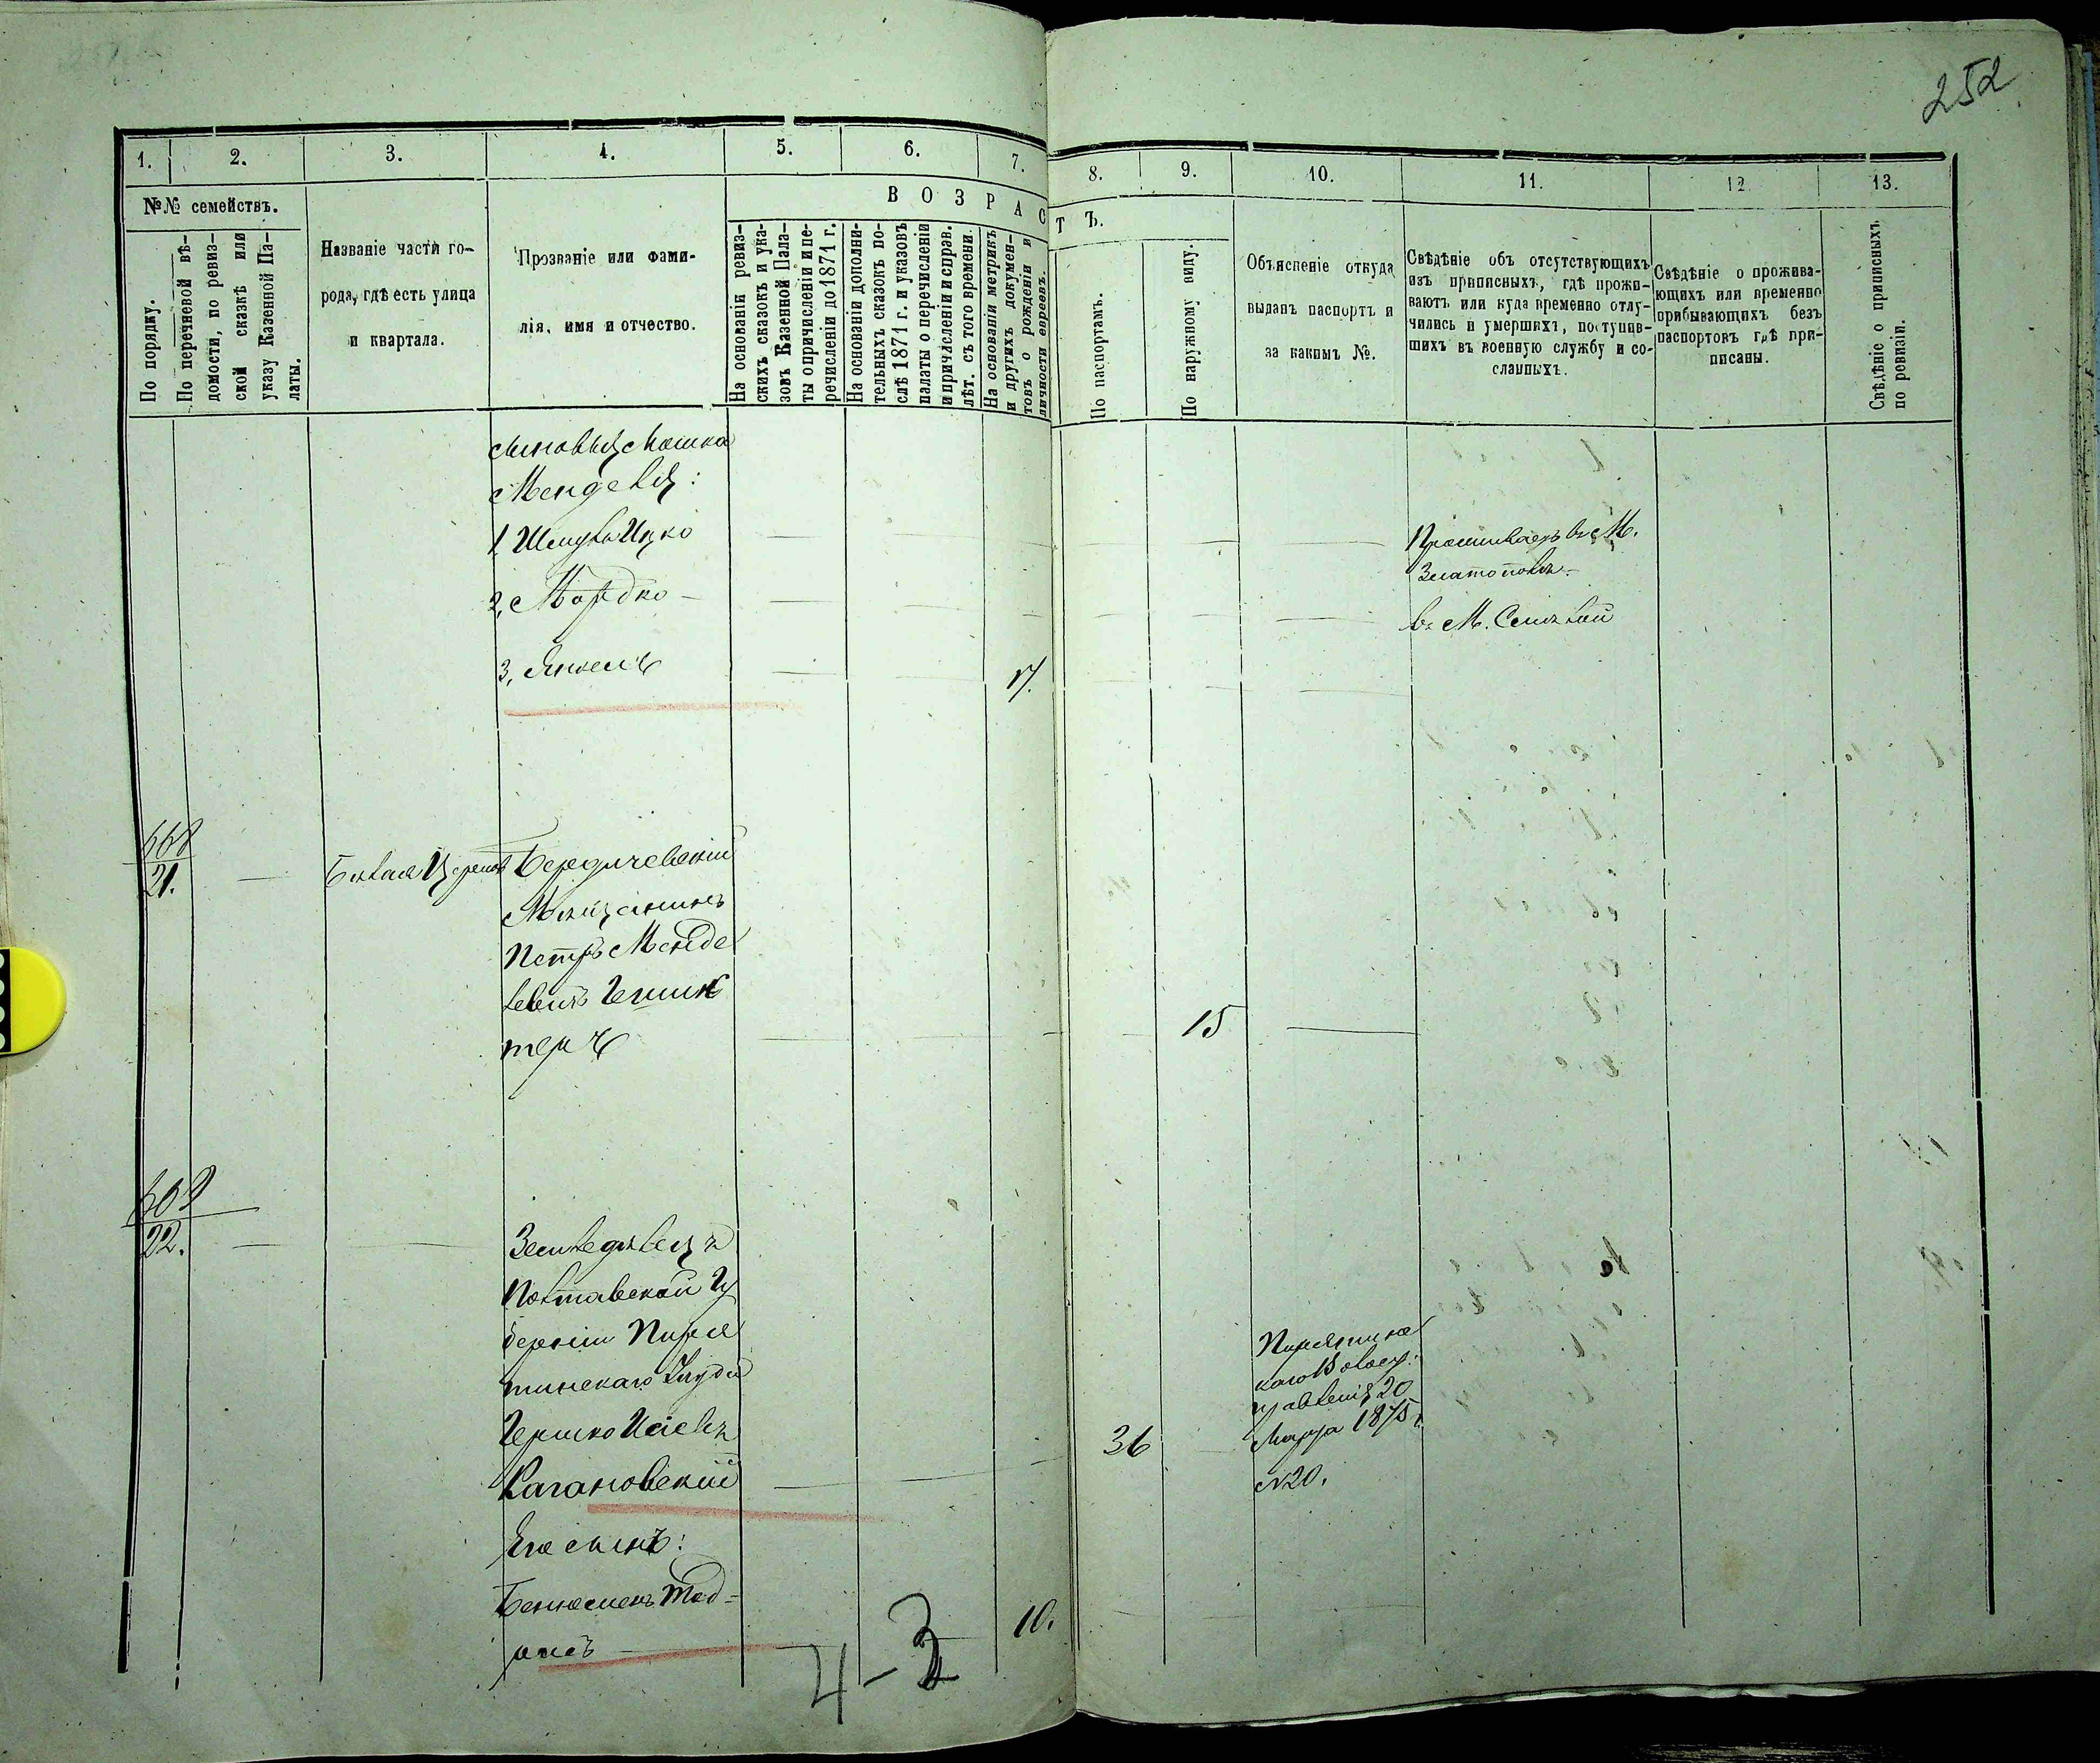 252
1.
2.
3.
4.
5.
6.
7.
8.
9.
10.
11.
12.
13.
№№ семействъ.
ВОЗРАСТЪ.
По порядку.
По перечневой вѣ-
домости, по ревиз-
ской сказкѣ или
указу Казенной Па-
латы.
Названіе части го-
рода, гдѣ есть улица
и квартала.
Прозваніе или фами-
лія, имя и отчество.
На основаніи ревиз-
скихъ сказокъ и ука-
зовъ Казенной Пала-
ты о причисленіи и пе-
речисленіи до 1871 г.
На основаніи дополни-
тельныхъ сказокъ по-
слѣ 1871 г. и указовъ
палаты о перечисленіи
и причисленіи и справ.
лѣт. съ того времени.
На основаніи метрикъ
и другихъ докумен-
товъ о рожденіи и
личности евреевъ.
По паспортамъ.
По наружному виду.
Объясненіе откуда
выданъ паспортъ и
за какимъ №.
Свѣдѣніе объ отсутствующихъ
изъ приписныхъ, гдѣ прожи-
ваютъ или куда временно отлу-
чились и умершихъ, поступив-
шихъ въ военную службу и со-
сланныхъ.
Свѣдѣніе о прожива-
ющихъ или временно
прибывающихъ безъ
паспортовъ гдѣ при-
писаны.
Свѣдѣніе о приписныхъ
по ревизіи.
сыновья Мошка
Менделя:
1. Шмуль Ицко
Проживаетъ въ М.
Златополѣ.
2, Мордко
въ М.
3, Янкель
17.
668
21.
Бѣлая Церковь
Бердичевскій
Мѣщанинъ
Петръ Менде
левичъ
15
22.
Земледѣлецъ
Полтавской Гу
берніи Пиря
тинскаго Уѣзда
Гершко
Кагановскій
36
Пирятинс
каго Волост:
правленія 20
Марта 1875 г.
№20.
Его сынъ:
10.
4-3